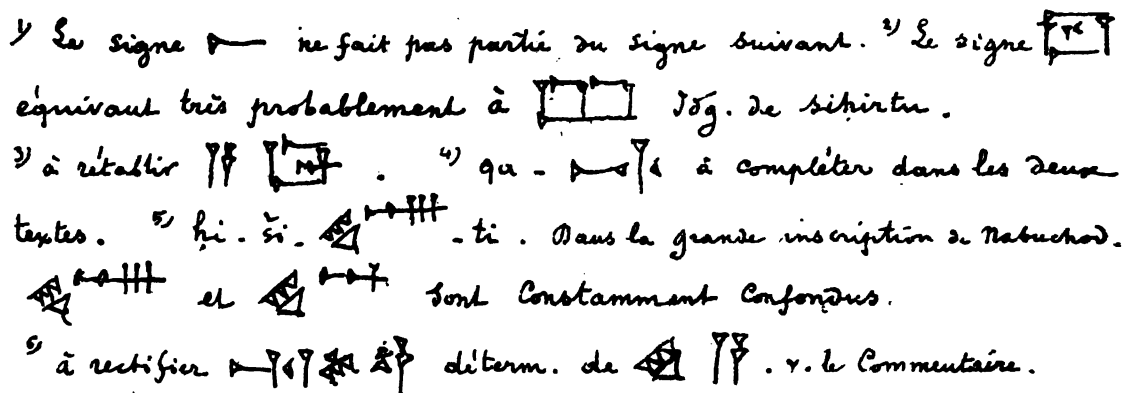 1) Le signe 𒀸 ne fait pas partie du signe suivant. 2) Le signe
équivaut très probablement à Idg. de siḫirtu.
3) à rétablir 𒀀 .  4) qa - à compléter dans les deux
textes. 5) ḫi - ši - - ti . Dans la grande inscription de Nabuchod.
et sont constamment confondus.
6) à rectifier déterm. de 𒀀 . v. le Commentaire.